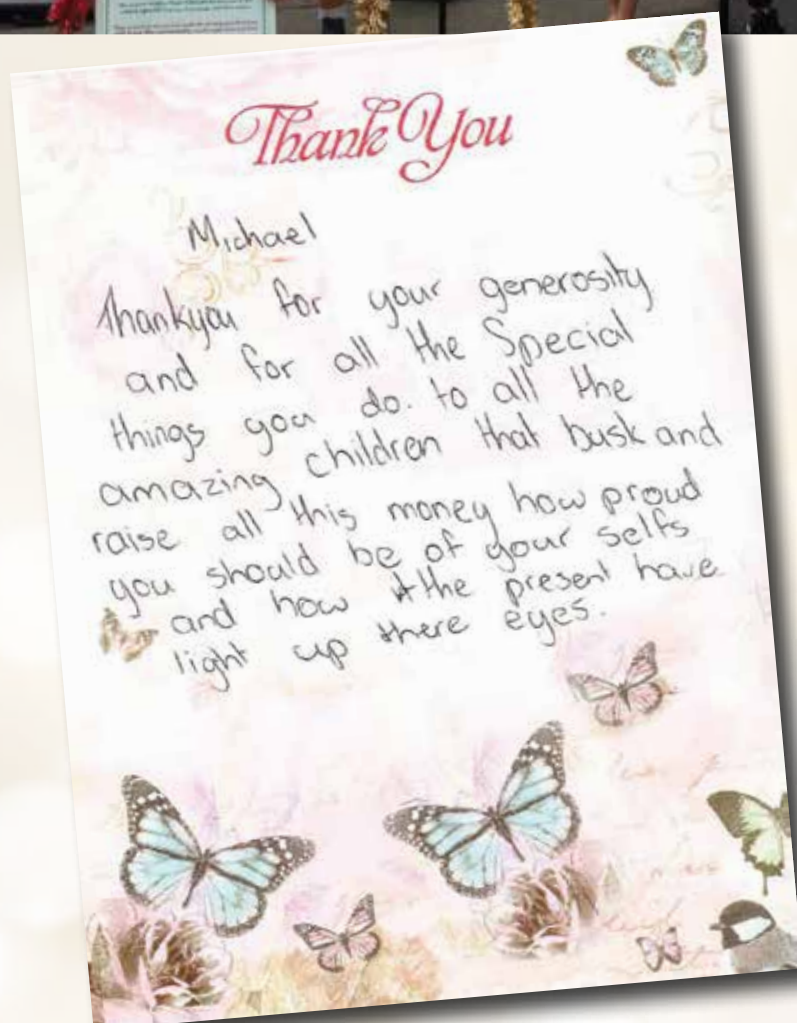 Thank You
Michael
Thankyou for your generosity
and for all the Special
things you do. to all the
amazing children that busk and
raise all this money how proud
you should be of your selfs
and how the present have
light up there eyes.